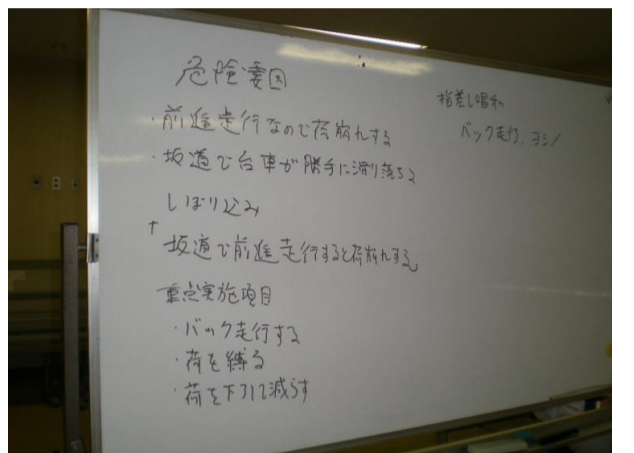 危険要因
・前進走行なので荷崩れする
・坂道で台車が勝手に滑り落ちる
しぼり込み
坂道で前進走行すると荷崩れする
重点実施項目
・バック走行する
・荷を縛る
・荷を下ろして減らす
指差し唱和
バック走行、ヨシ!